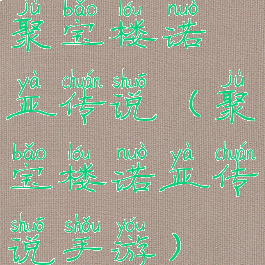 jù bǎo lóu nuò
聚宝楼诺
yà chuán shuō jù
亚传说（聚
bǎo lóu nuò yà chuán
宝楼诺亚传
shuō shǒu yóu
说手游）